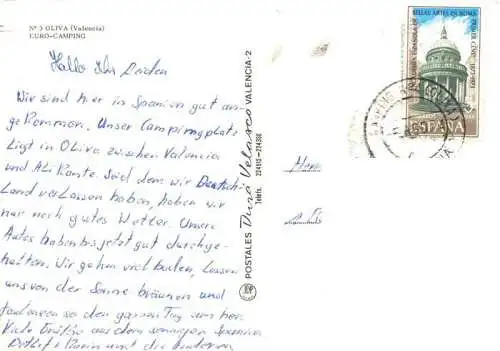 Nº 3 OLIVA (Valencia)
EURO-CAMPING
Hallo Ihr Beiden
Wir sind hier in Spanien gut an
gekommen. Unser Campingplatz
Ligt in Oliva zwischen Valencia
und Alikante Seid dem wir Deutsch-
Land verlassen haben, haben wir
nur noch gutes Wetter. Unsere
Autos haben bis jetzt gut durchge-
halten. Wir gehen viel baden, Lassen
uns von der Sonne bräunen und
faulenzen so den ganzen Tag
Viele Grüße aus dem sonnigen Spanien
und die anderen
POSTALES Durá Velasco VALENCIA-2
Telefs. 224310-224398
Herrn
BELLAS ARTES EN ROMA
ESPAÑA